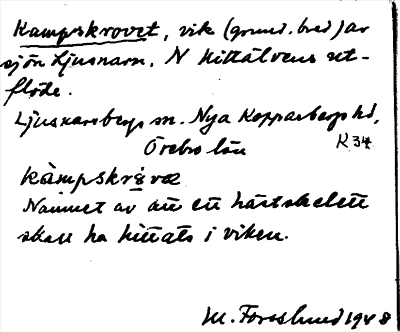 Kampskrovet, vik (grund, bred) av
sjön Ljusnarn, N Hittälvens ut-
flöde.
Ljusnarsbergs sn. Nya Kopparbergs hd,
Örebro län K34
kàmpskrò̤vœ
Namnet av att ett hästskelett
skall ha hittats i viken.
M. Forslund 1948